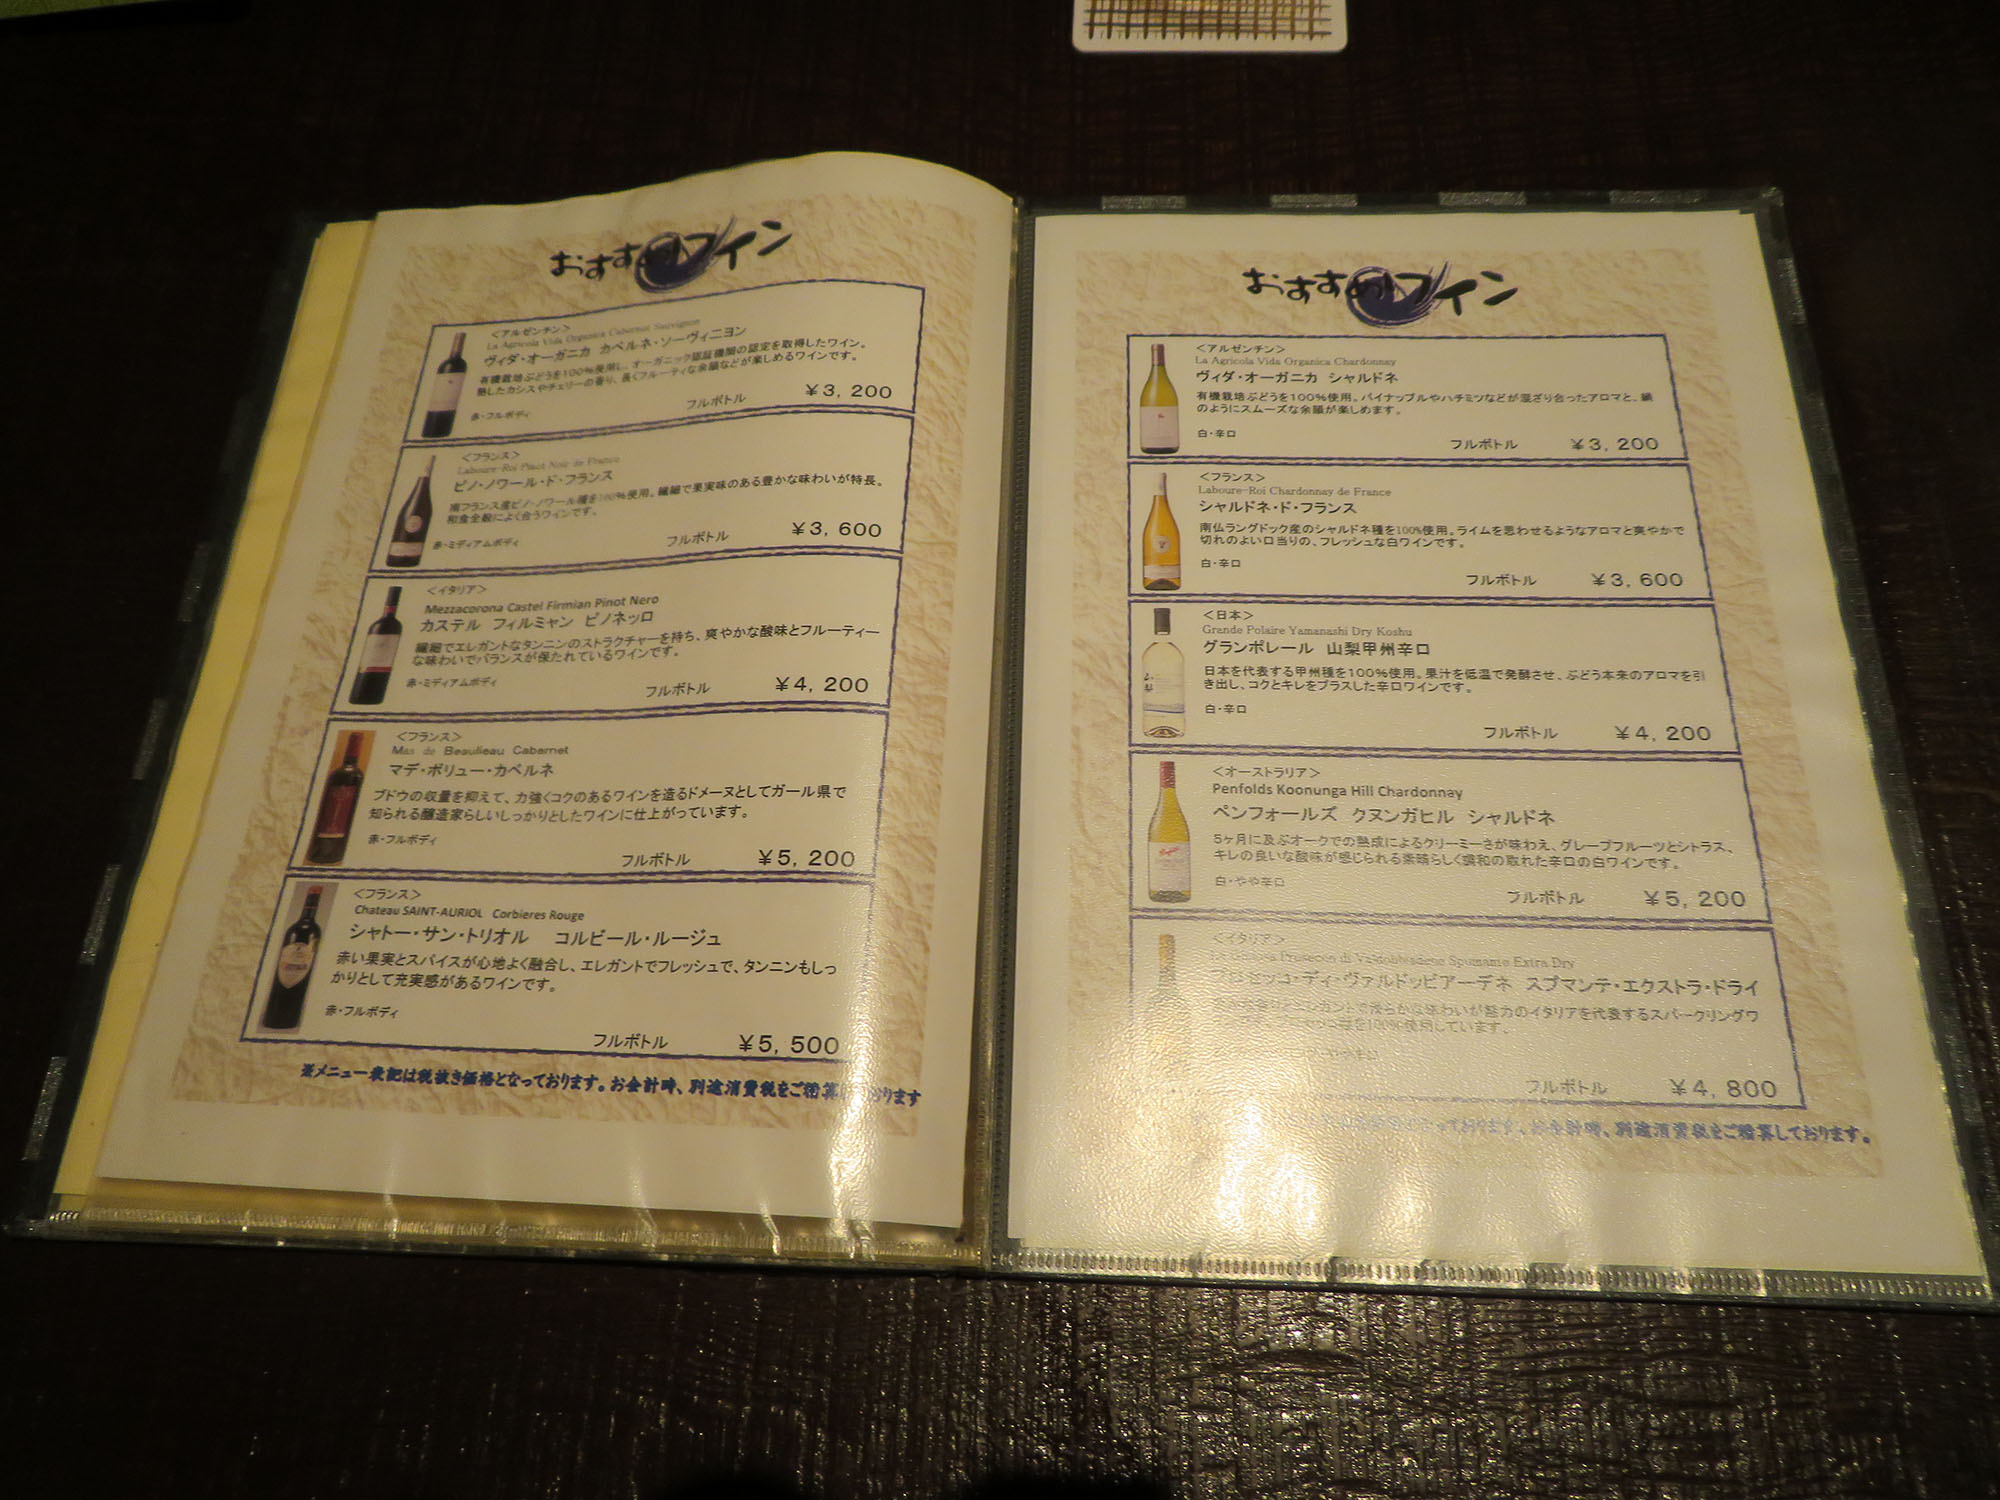 おすすめワイン
＜アルゼンチン＞
La Agricola Vida Organica Cabernet Sauvignon
ヴィダ・オーガニカ カベルネ・ソーヴィニヨン
有機栽培ぶどうを100％使用し、オーガニック認証機関の認定を取得したワイン。
熟したカシスやチェリーの香り、長くフルーティな余韻などが楽しめるワインです。
赤・フルボディ
フルボトル ￥3, 200
＜フランス＞
Laboure-Roi Pinot Noir de France
ピノ・ノワール・ド・フランス
南フランス産ピノ・ノワール種を100％使用。繊細で果実味のある豊かな味わいが特長。
和食全般によく合うワインです。
赤・ミディアムボディ
フルボトル ￥3, 600
＜イタリア＞
Mezzacorona Castel Firmian Pinot Nero
カステル フィルミャン ピノネッロ
繊細でエレガントなタンニンのストラクチャーを持ち、爽やかな酸味とフルーティー
な味わいでバランスが保たれているワインです。
赤・ミディアムボディ
フルボトル ￥4, 200
＜フランス＞
Mas de Beaulieau Cabernet
マデ・ボリュー・カベルネ
ブドウの収量を抑えて、力強くコクのあるワインを造るドメーヌとしてガール県で
知られる醸造家らしいしっかりとしたワインに仕上がっています。
赤・フルボディ
フルボトル ￥5, 200
＜フランス＞
Chateau SAINT-AURIOL Corbieres Rouge
シャトー・サン・トリオル コルビール・ルージュ
赤い果実とスパイスが心地よく融合し、エレガントでフレッシュで、タンニンもしっ
かりとして充実感があるワインです。
赤・フルボディ
フルボトル ￥5, 500
※メニュー表記は税抜き価格となっております。お会計時、別途消費税をご精算しております
おすすめワイン
＜アルゼンチン＞
La Agricola Vida Organica Chardonnay
ヴィダ・オーガニカ シャルドネ
有機栽培ぶどうを100％使用。パイナップルやハチミツなどが混ざり合ったアロマと、絹
のようにスムーズな余韻が楽しめます。
白・辛口
フルボトル ￥3, 200
＜フランス＞
Laboure-Roi Chardonnay de France
シャルドネ・ド・フランス
南仏ラングドック産のシャルドネ種を100％使用。ライムを思わせるようなアロマと爽やかで
切れのよい口当りの、フレッシュな白ワインです。
白・辛口
フルボトル ￥3, 600
＜日本＞
Grande Polaire Yamanashi Dry Koshu
グランポレール 山梨甲州辛口
日本を代表する甲州種を100％使用。果汁を低温で発酵させ、ぶどう本来のアロマを引
き出し、コクとキレをプラスした辛口ワインです。
白・辛口
フルボトル ￥4, 200
＜オーストラリア＞
Penfolds Koonunga Hill Chardonnay
ペンフォールズ クヌンガヒル シャルドネ
5ヶ月に及ぶオークでの熟成によるクリーミーさが味わえ、グレープフルーツとシトラス、
キレの良い酸味が感じられる素晴らしく調和の取れた辛口の白ワインです。
白・やや辛口
フルボトル ￥5, 200
＜イタリア＞
Prosecco di Valdobbiadene Spumante Extra Dry
セッコ・ディ・ヴァルドッビアーデネ スプマンテ・エクストラ・ドライ
エレガントで滑らかな味わいが魅力のイタリアを代表するスパークリングワ
種を100％使用しています。
フルボトル ￥4, 800
なっております。お会計時、別途消費税をご精算しております。